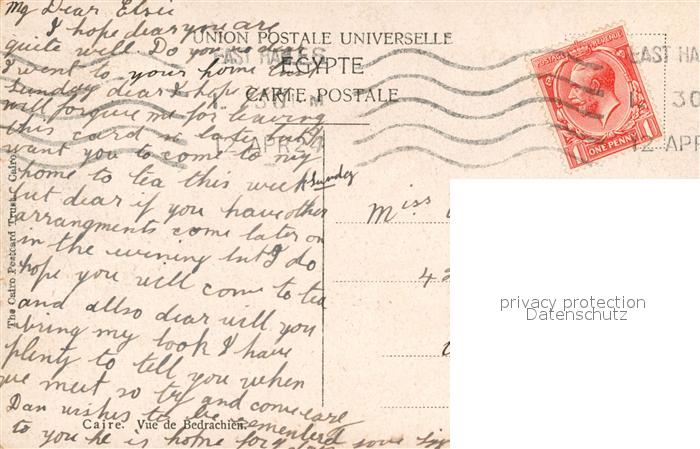 My Dear Elsie
I hope dear you are
quite well Do you no dear
I went to your home last
Sunday dear I hope you
will forgive me for leaving
this card so late but I
want you to come to my
home to tea this week
Sunday
but dear if you have other
arrangments come later on
in the evining but I do
hope you will come to tea
and allso dear will you
bring my book I have
plenty to tell you when
we meet so try and come
Dan wishes to be
to you he is home for
UNION POSTALE UNIVERSELLE
EGYPTE
CARTE POSTALE
EAST HAM E.
30 PM
12 APR 24
EAST HA
30
12 APR 24
POSTAGE REVENUE
1 ONE PENNY 1
Miss
42
The Cairo Postcard Trust, Cairo
Caire. Vue de Bedrachien.
privacy protection
Datenschutz